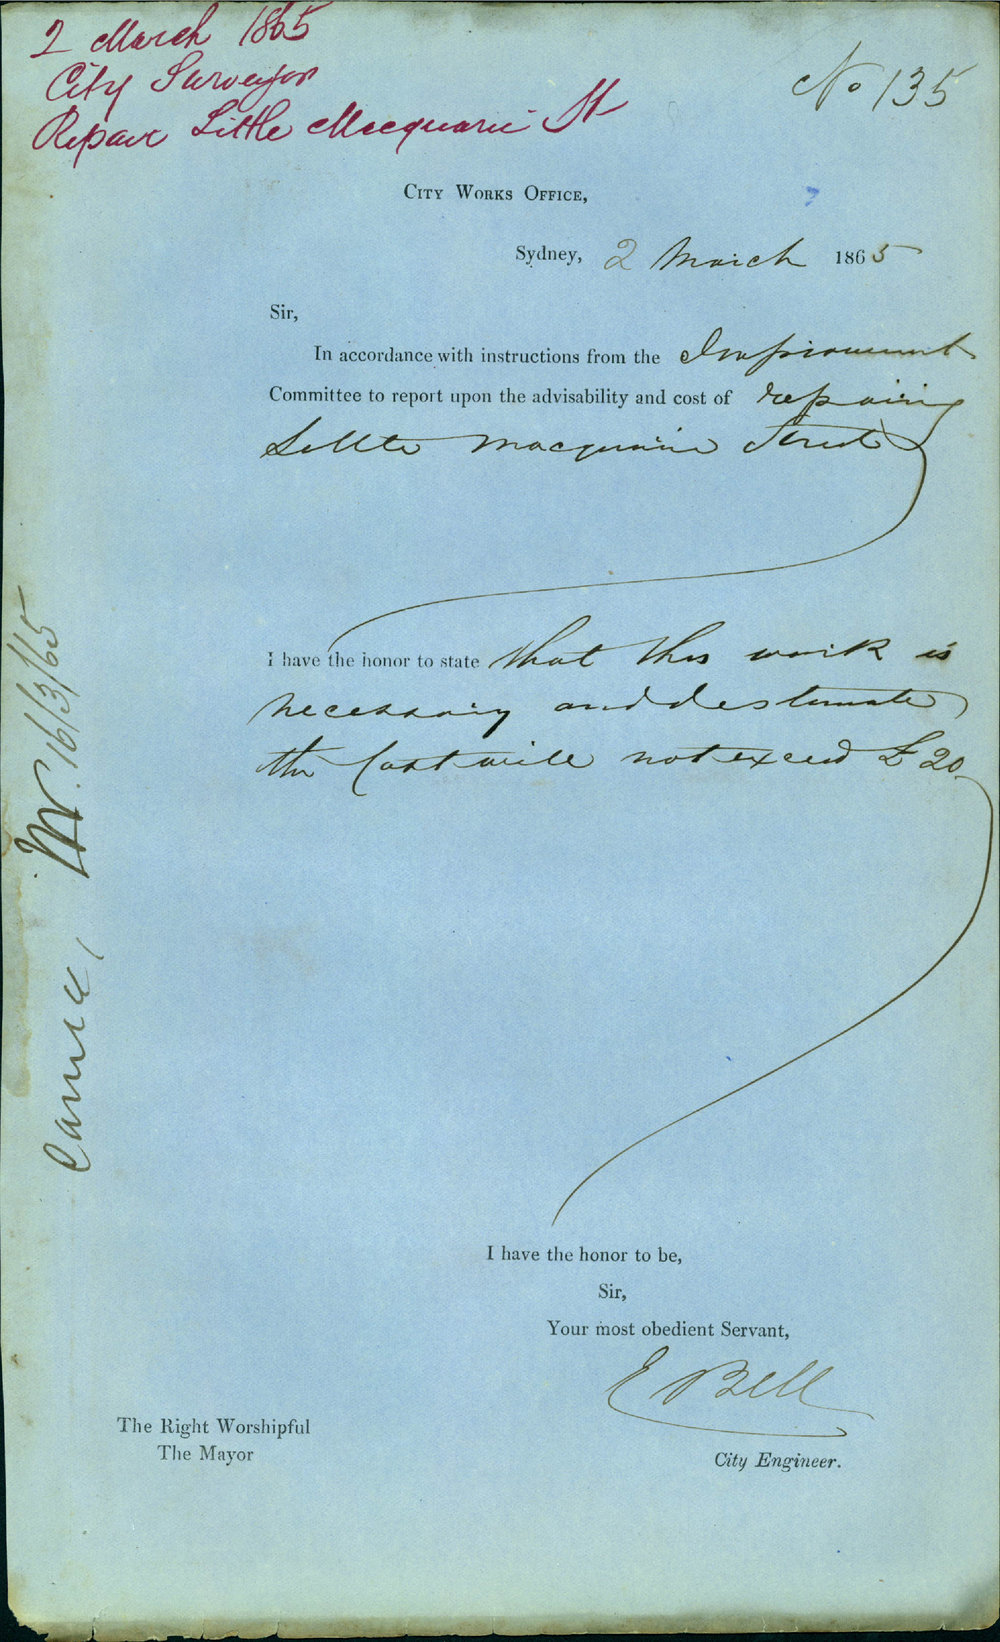 2 March 1865
City Surveyor
Repair Little Macquarie St
No 135
City Works Office,
Sydney, 2 March 1865
Sir,
In accordance with instructions from the Improvement
Committee to report upon the advisability and cost of repairing
Little Macquarie Street
I have the honor to state that this work is
necessary and estimate
the Cost will not exceed £20
I have the honor to be,
Sir,
Your most obedient Servant,
E Bell
City Engineer.
The Right Worshipful
The Mayor
16/3/65